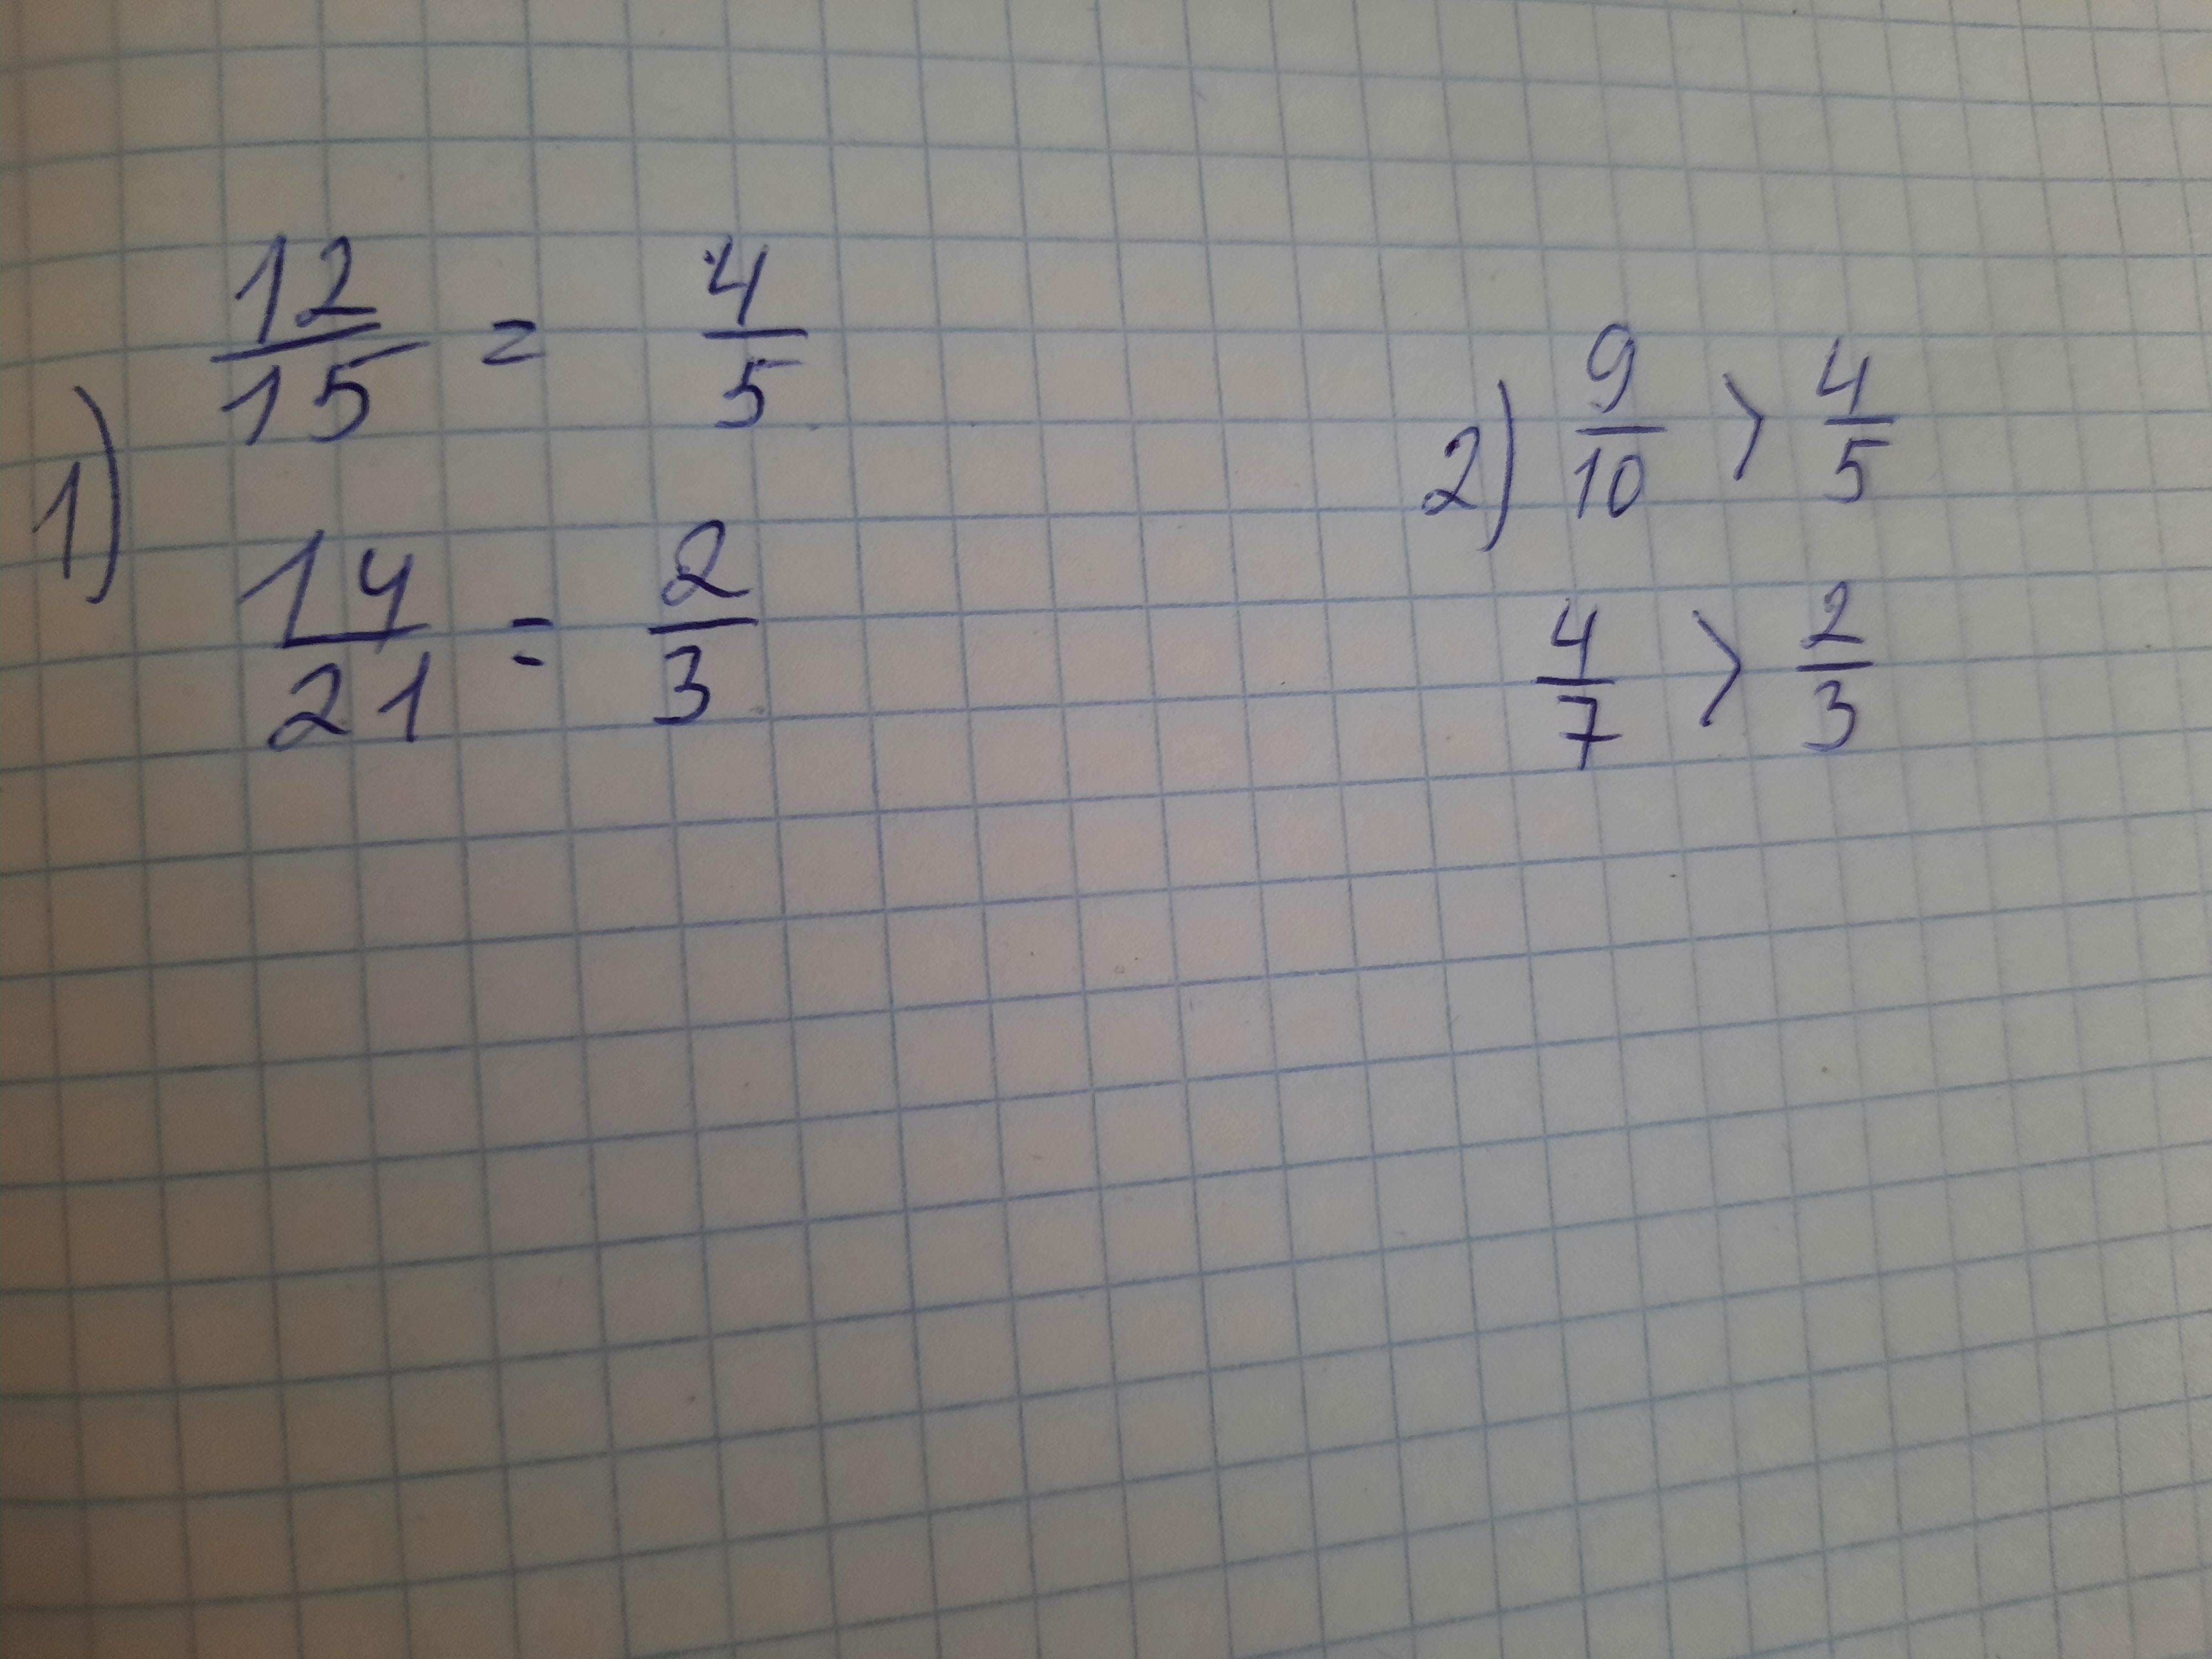 1) 12/15 = 4/5
14/21 = 2/3
2) 9/10 > 4/5
4/7 > 2/3